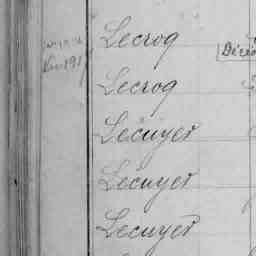 Lecroq
Lecroq
Lecuyer
Lecuyer
Lecuyer